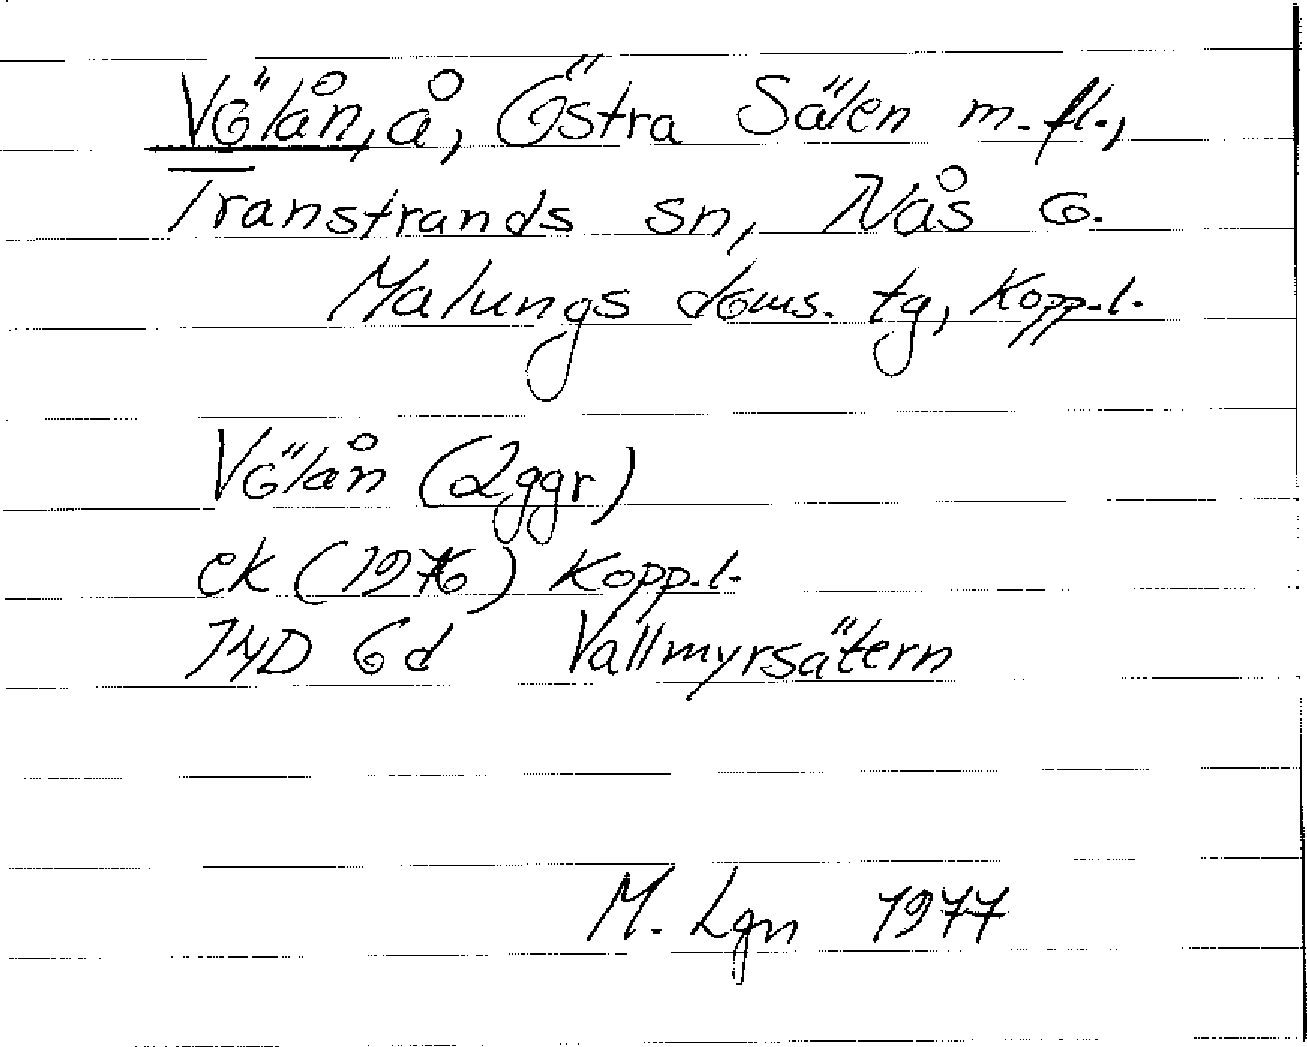 Völån, å, Östra Sälen m. fl.,
Transtrands sn, Nås o.
Malungs doms. tg, Kopp. l.
Völån (2 ggr)
ek (1976) Kopp. l.
14D 6d Vallmyrsätern
M. Lgn 1977